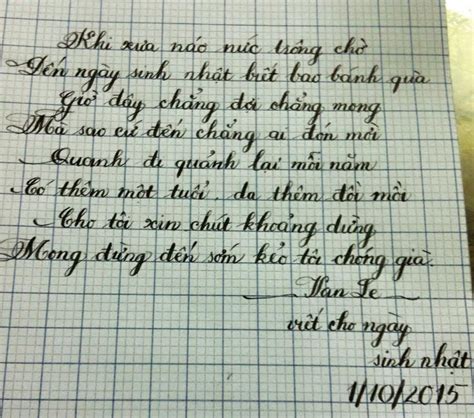 Khi xưa náo nức trông chờ
Đến ngày sinh nhật biết bao bánh quà
Giờ đây chẳng đợi chẳng mong
Mà sao cứ đến chẳng ai đón mời
Quanh đi quảnh lại mỗi năm
Có thêm một tuổi, da thêm đồi mồi
Cho tôi xin chút khoảng dừng
Mong đừng đến sớm kẻo tôi chóng già.
Van Le
viết cho ngày
sinh nhật
1/10/2015